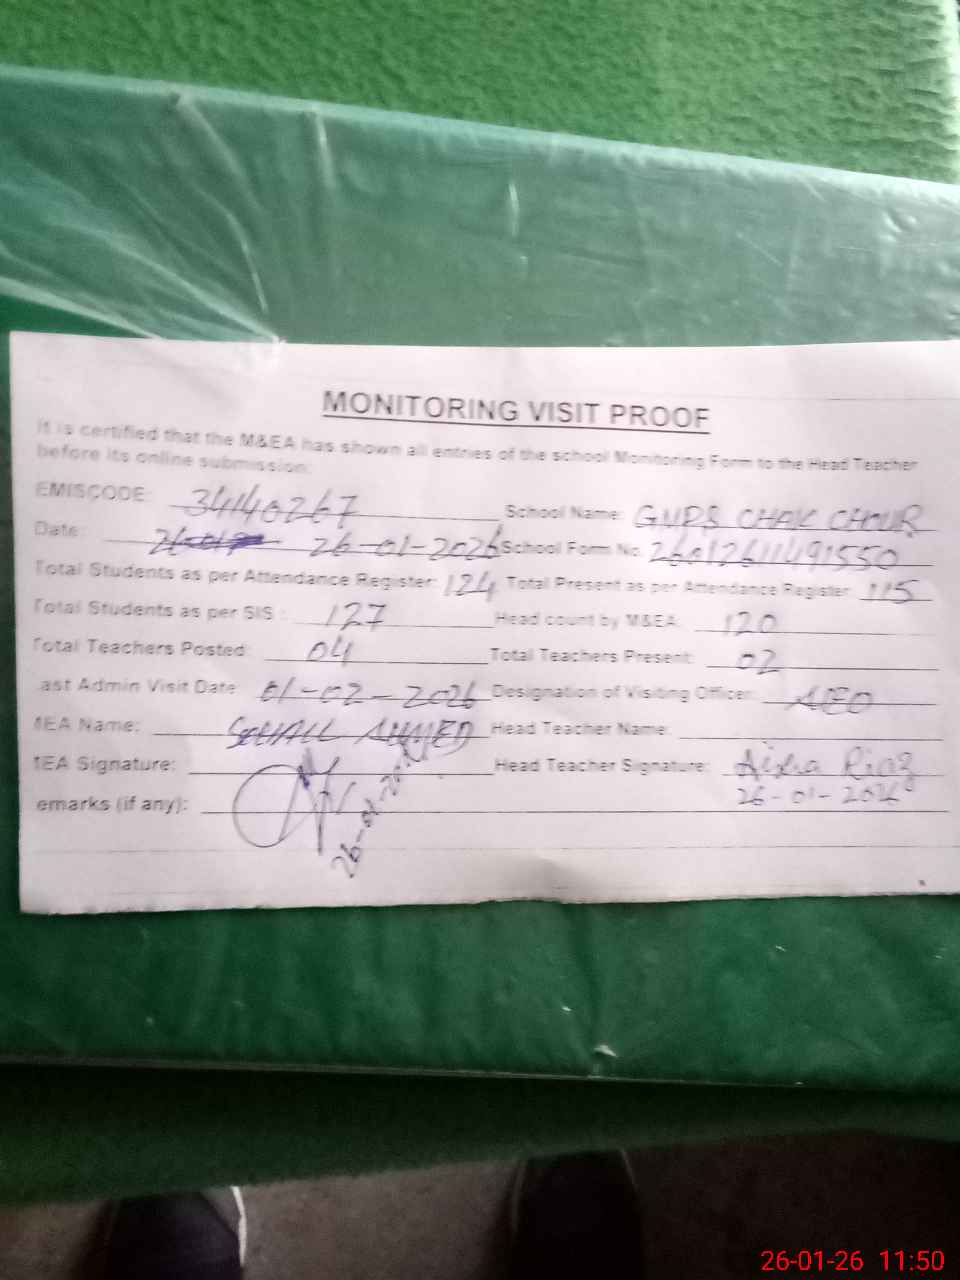 MONITORING VISIT PROOF
It is certified that the M&EA has shown all entries of the school Monitoring Form to the Head Teacher
before its online submission:
EMISCODE: 34140267 School Name: GMPS CHAK CHOUR
Date: 26-01-2026 School Form No. 26012611491550
Total Students as per Attendance Register: 124 Total Present as per Attendance Register 115
Total Students as per SIS : 127 Head count by M&EA: 120
Total Teachers Posted: 04 Total Teachers Present: 02
ast Admin Visit Date: 01-02-2026 Designation of Visiting Officer: AEO
MEA Name: SOHAIL AHMED Head Teacher Name:
MEA Signature: Head Teacher Signature: Aisha Riaz
26-01-2026
emarks (if any):
26-01-2026
26-01-26 11:50